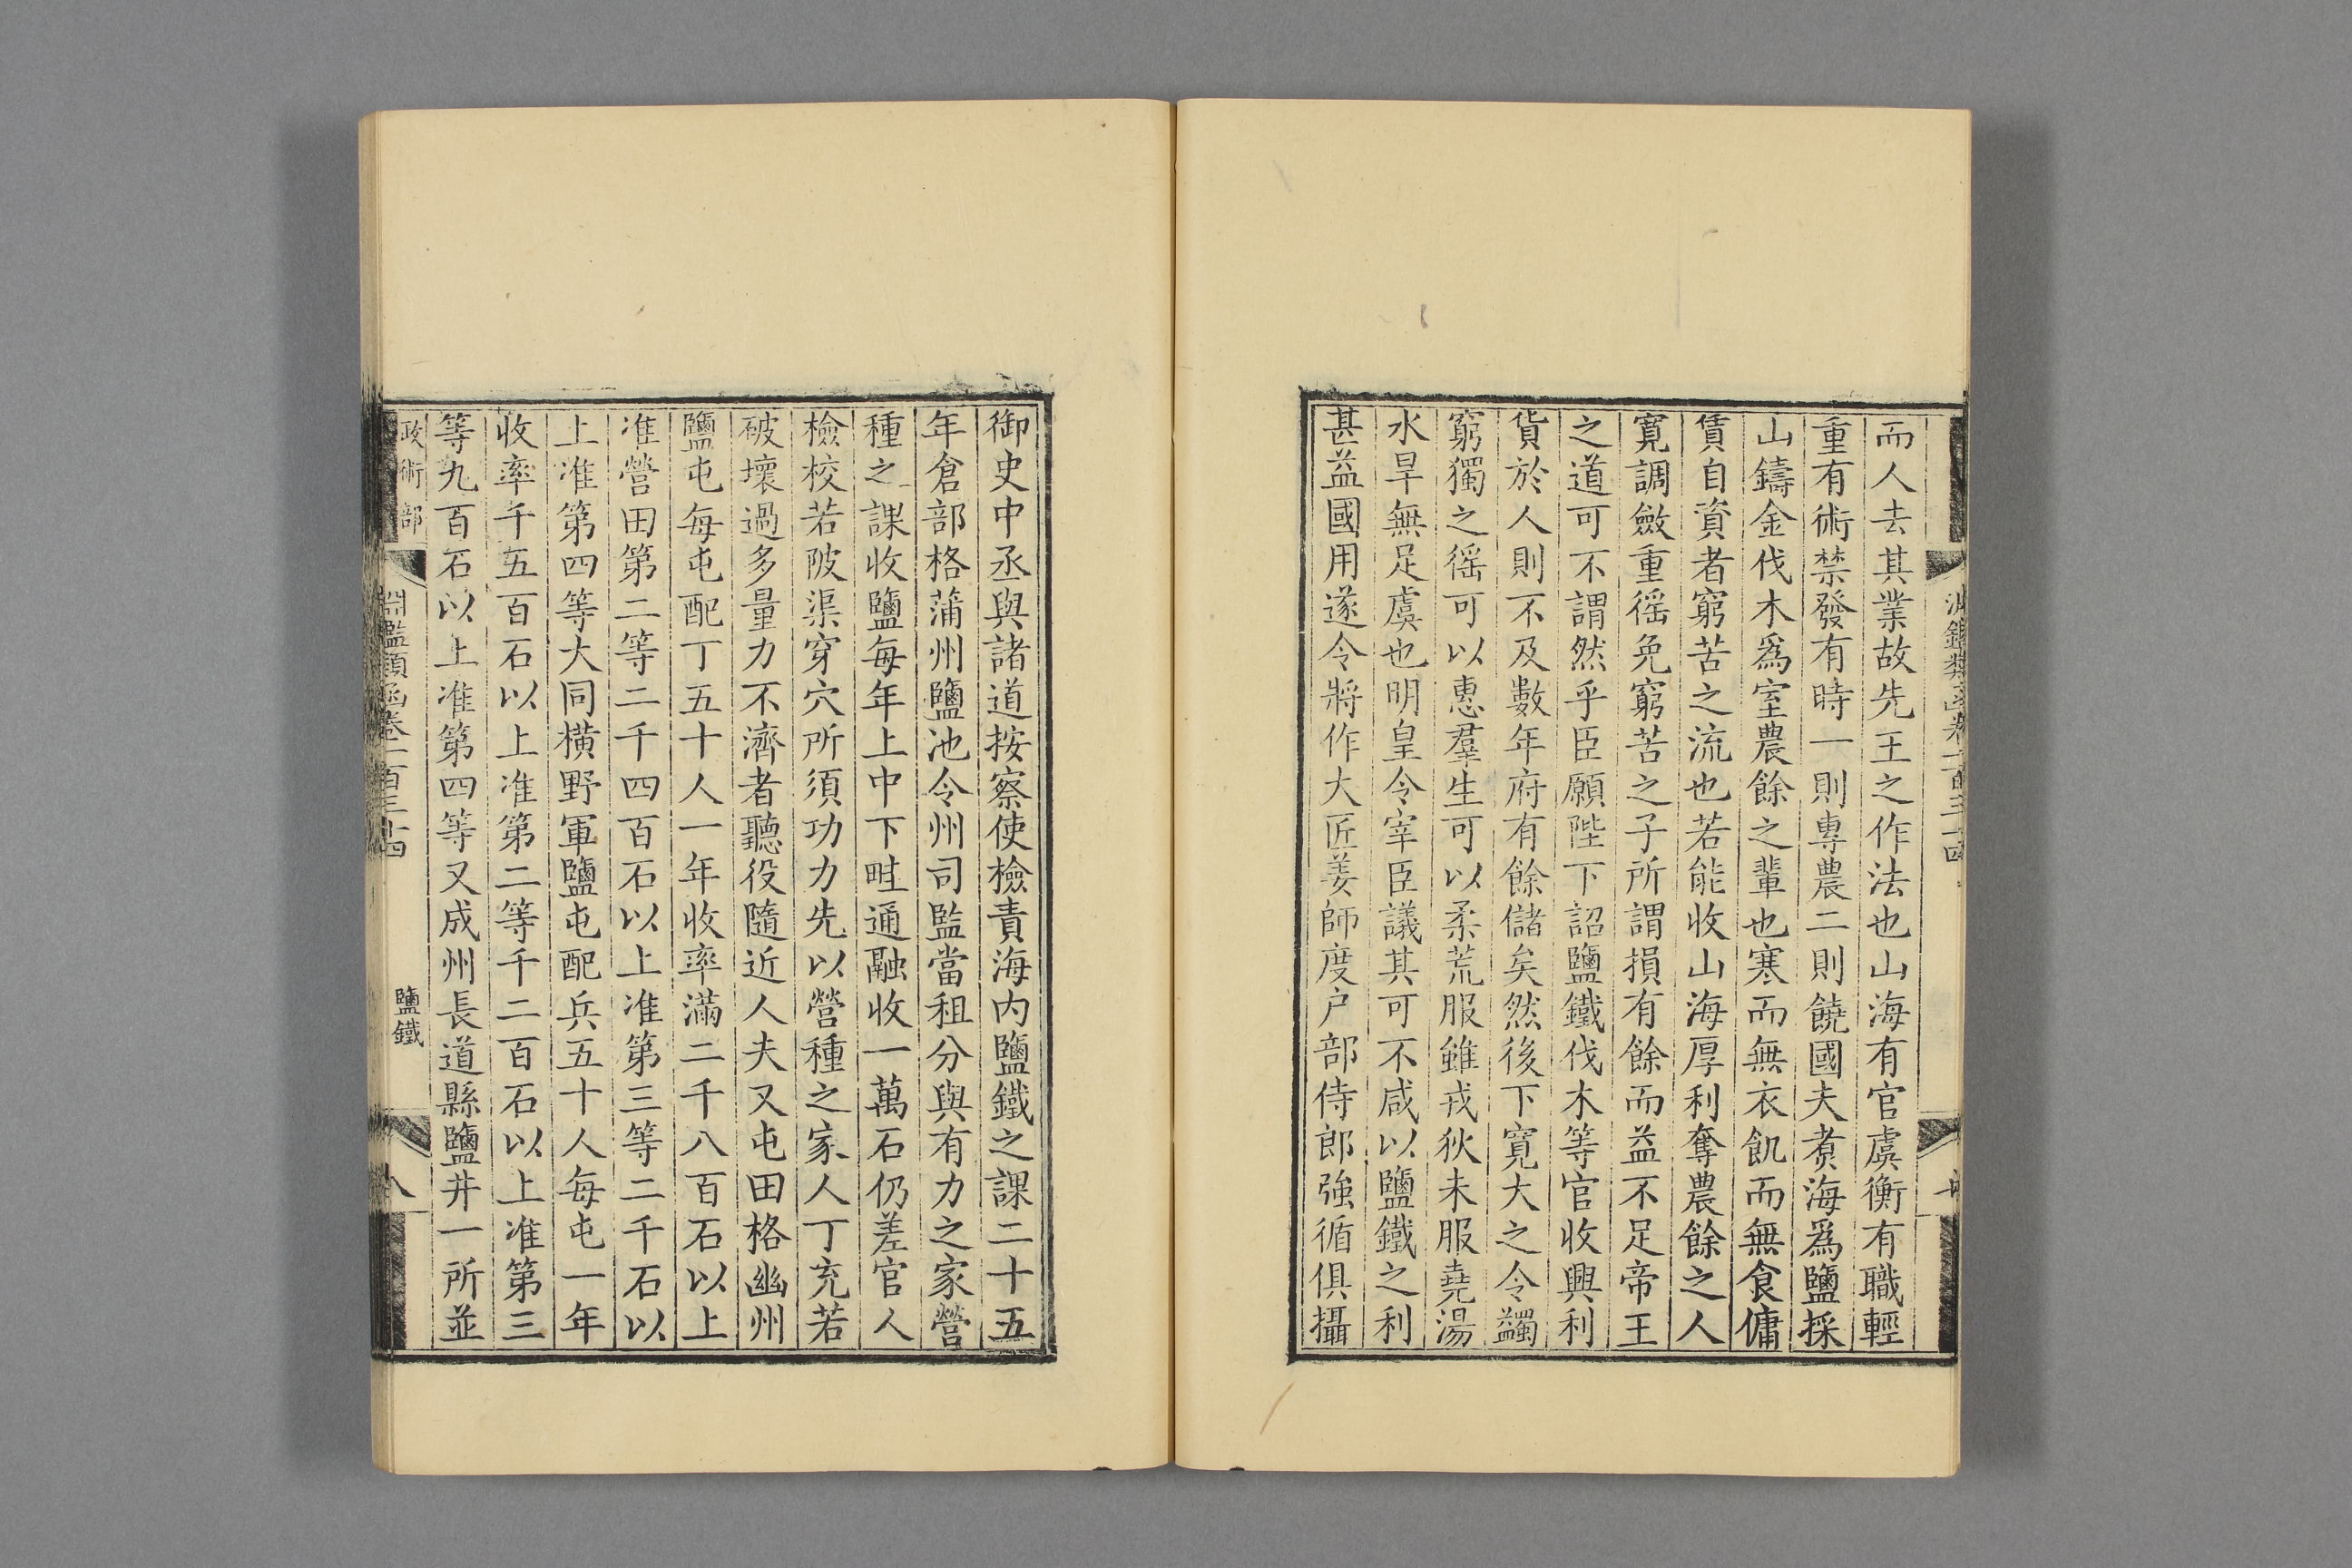 而人去其業故先王之作法也山海有官虞衡有職輕
重有術禁發有時一則專農二則饒國夫煑海爲鹽採
山鑄金伐木爲室農餘之輩也寒而無衣飢而無食傭
賃自資者窮苦之流也若能收山海厚利奪農餘之人
寬調斂重徭免窮苦之子所謂損有餘而益不足帝王
之道可不謂然乎臣願陛下詔鹽鐵伐木等官收興利
貨於人則不及數年府有餘儲矣然後下寬大之令蠲
窮獨之徭可以惠羣生可以柔荒服雖戎狄未服堯湯
水旱無足虞也明皇令宰臣議其可不咸以鹽鐵之利
甚益國用遂令將作大匠姜師度户部侍郎強循俱攝
御史中丞與諸道按察使檢責海内鹽鐵之課二十五
年倉部格蒲州鹽池令州司監當租分與有力之家營
種之課收鹽每年上中下畦通融收一萬石仍差官人
檢校若陂渠穿穴所須功力先以營種之家人丁充若
破壞過多量力不濟者聽役隨近人夫又屯田格幽州
鹽屯每屯配丁五十人一年收率滿二千八百石以上
准營田第二等二千四百石以上准第三等二千石以
上准第四等大同横野軍鹽屯配兵五十人每屯一年
收率千五百石以上准第二等千二百石以上准第三
等九百石以上准第四等又成州長道縣鹽井一所並
政術部
淵鑑類函卷一百三十四
鹽鐵
八